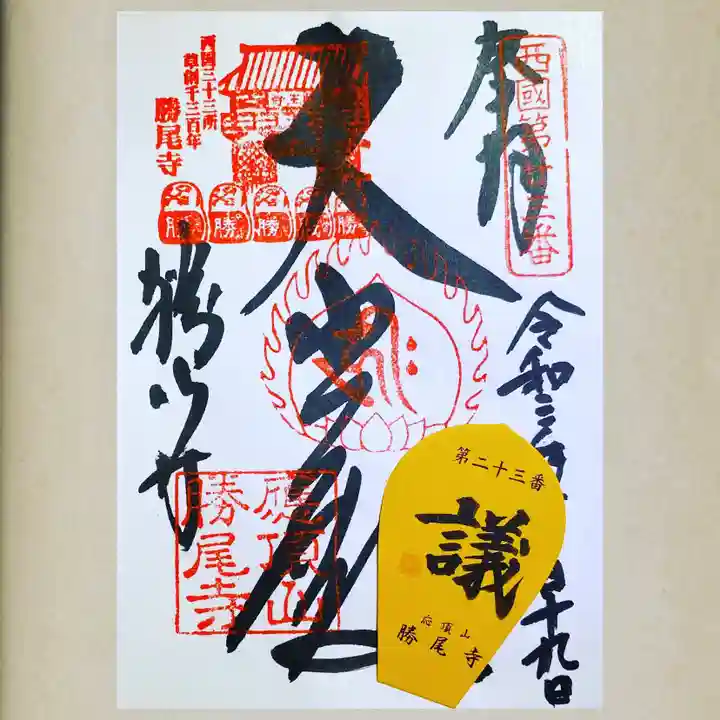 奉拝
西國第廿三番
令和三年
十九日
大悲殿
西国三十三所
草創千三百年
勝尾寺
勝
勝
勝
勝
勝
勝尾寺
應頂山
勝尾寺
第二十三番
議
応頂山
勝尾寺